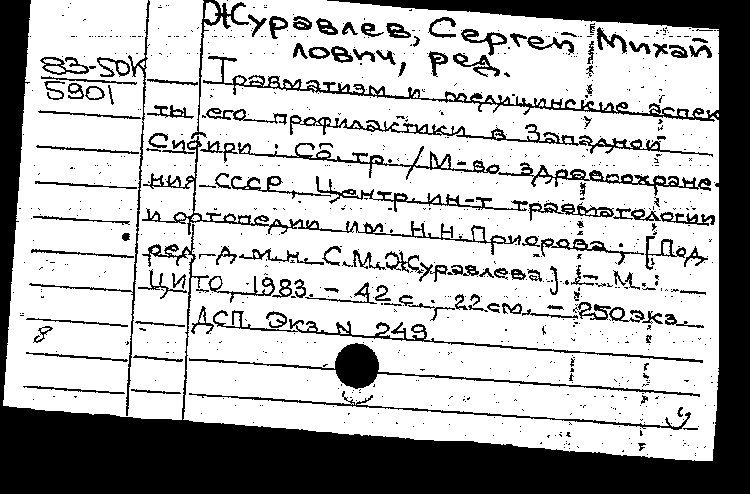 Журавлев, Сергей Михай
лович, ред.
83-50К
5901
Травматизм и медицинские аспек
ты его профилактики в Западной
Сибири : Сб. тр. / М-во здравоохране-
ния СССР, Центр. ин-т травматологии
и ортопедии им. Н.Н.Приорова ; [Под
ред. д.м.н. С.М.Журавлева]. - М. :
ЦИТО, 1983. - 42 с. ; 22 см. - 250 экз.
ДСП. Экз. N 249.
8